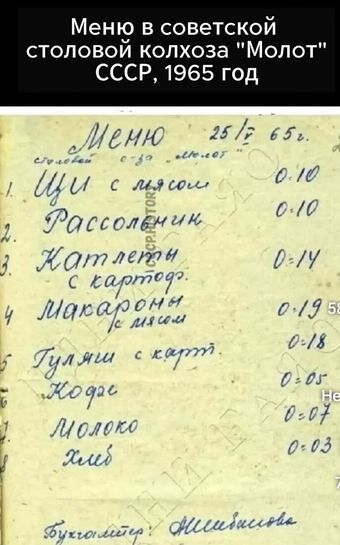 Меню в советской
столовой колхоза "Молот"
СССР, 1965 год
Меню 25/V 65г.
столовой с-за „Молот"
1. Щи с мясом 0-10
2. Рассольник 0-10
3. Катлеты 0-14
с картоф.
4 Макароны 0-19
с мясом
5 Гуляш с карт. 0-18
6 Кофе 0-05
7. Молоко 0-07
8 Хлеб 0-03
Бухгалтер: